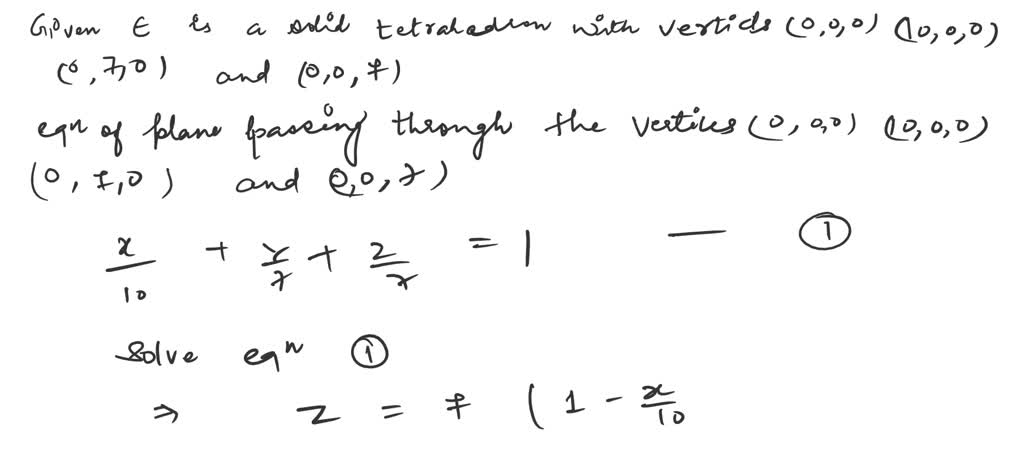 Given E is a solid tetrahedron with verticls (0,0,0) (10,0,0)
(0,7,0) and (0,0,7)
eqn of plane passing through the vertices (0,0,0) (10,0,0)
(0,7,0) and (0,0,7)
x/10 + y/7 + z/7 = 1 — ①
Solve eqn ①
⇒ z = 7 (1 - x/10